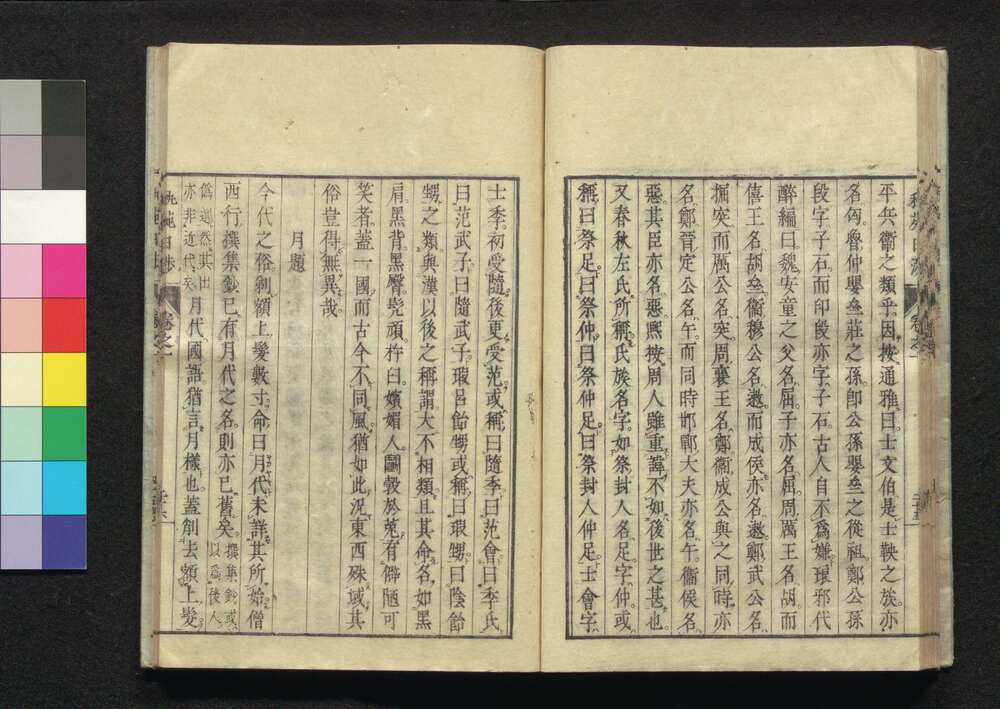 平兵衞之類乎因按通雅曰士文伯是士鞅之族亦
名匄魯仲嬰齊莊之孫卽公孫嬰齊之從祖鄭公孫
段字子石而印段亦字子石古人自不爲嫌琅邪代
醉編曰魏安童之父名屈子亦名屈周厲王名胡而
僖王名胡齊衞穆公名遫而成侯亦名遫鄭武公名
掘突而厲公名突周襄王名鄭衞成公與之同時亦
名鄭晉定公名午而同時邯鄲大夫亦名午衞侯名
惡其臣亦名惡熈按周人雖重諱不如後世之甚也
又春秋左氏所稱氏族名字如祭封人名足字仲或
稱曰祭足曰祭仲曰祭仲足曰祭封人仲足士會字
士季初受隨後更受范或稱曰隨季曰范會曰季氏
曰范武子曰隨武子瑕呂飴甥或稱曰瑕甥曰陰飴
甥之類與漢以後之稱謂大不相類且其命名如黑
肩黑背黑臀髠頑杵臼嬪媚人鬭穀於菟有僻陋可
笑者蓋一國而古今不同風猶如此況東西殊域其
俗豈得無異哉
月題
今代之俗剃額上髮數寸命曰月代未詳其所始僧
西行撰集鈔已有月代之名則亦已舊矣
撰集鈔或
以爲後人
僞造然其出
亦非近代矣
月代國語猶言月樣也蓋剃去額上髮